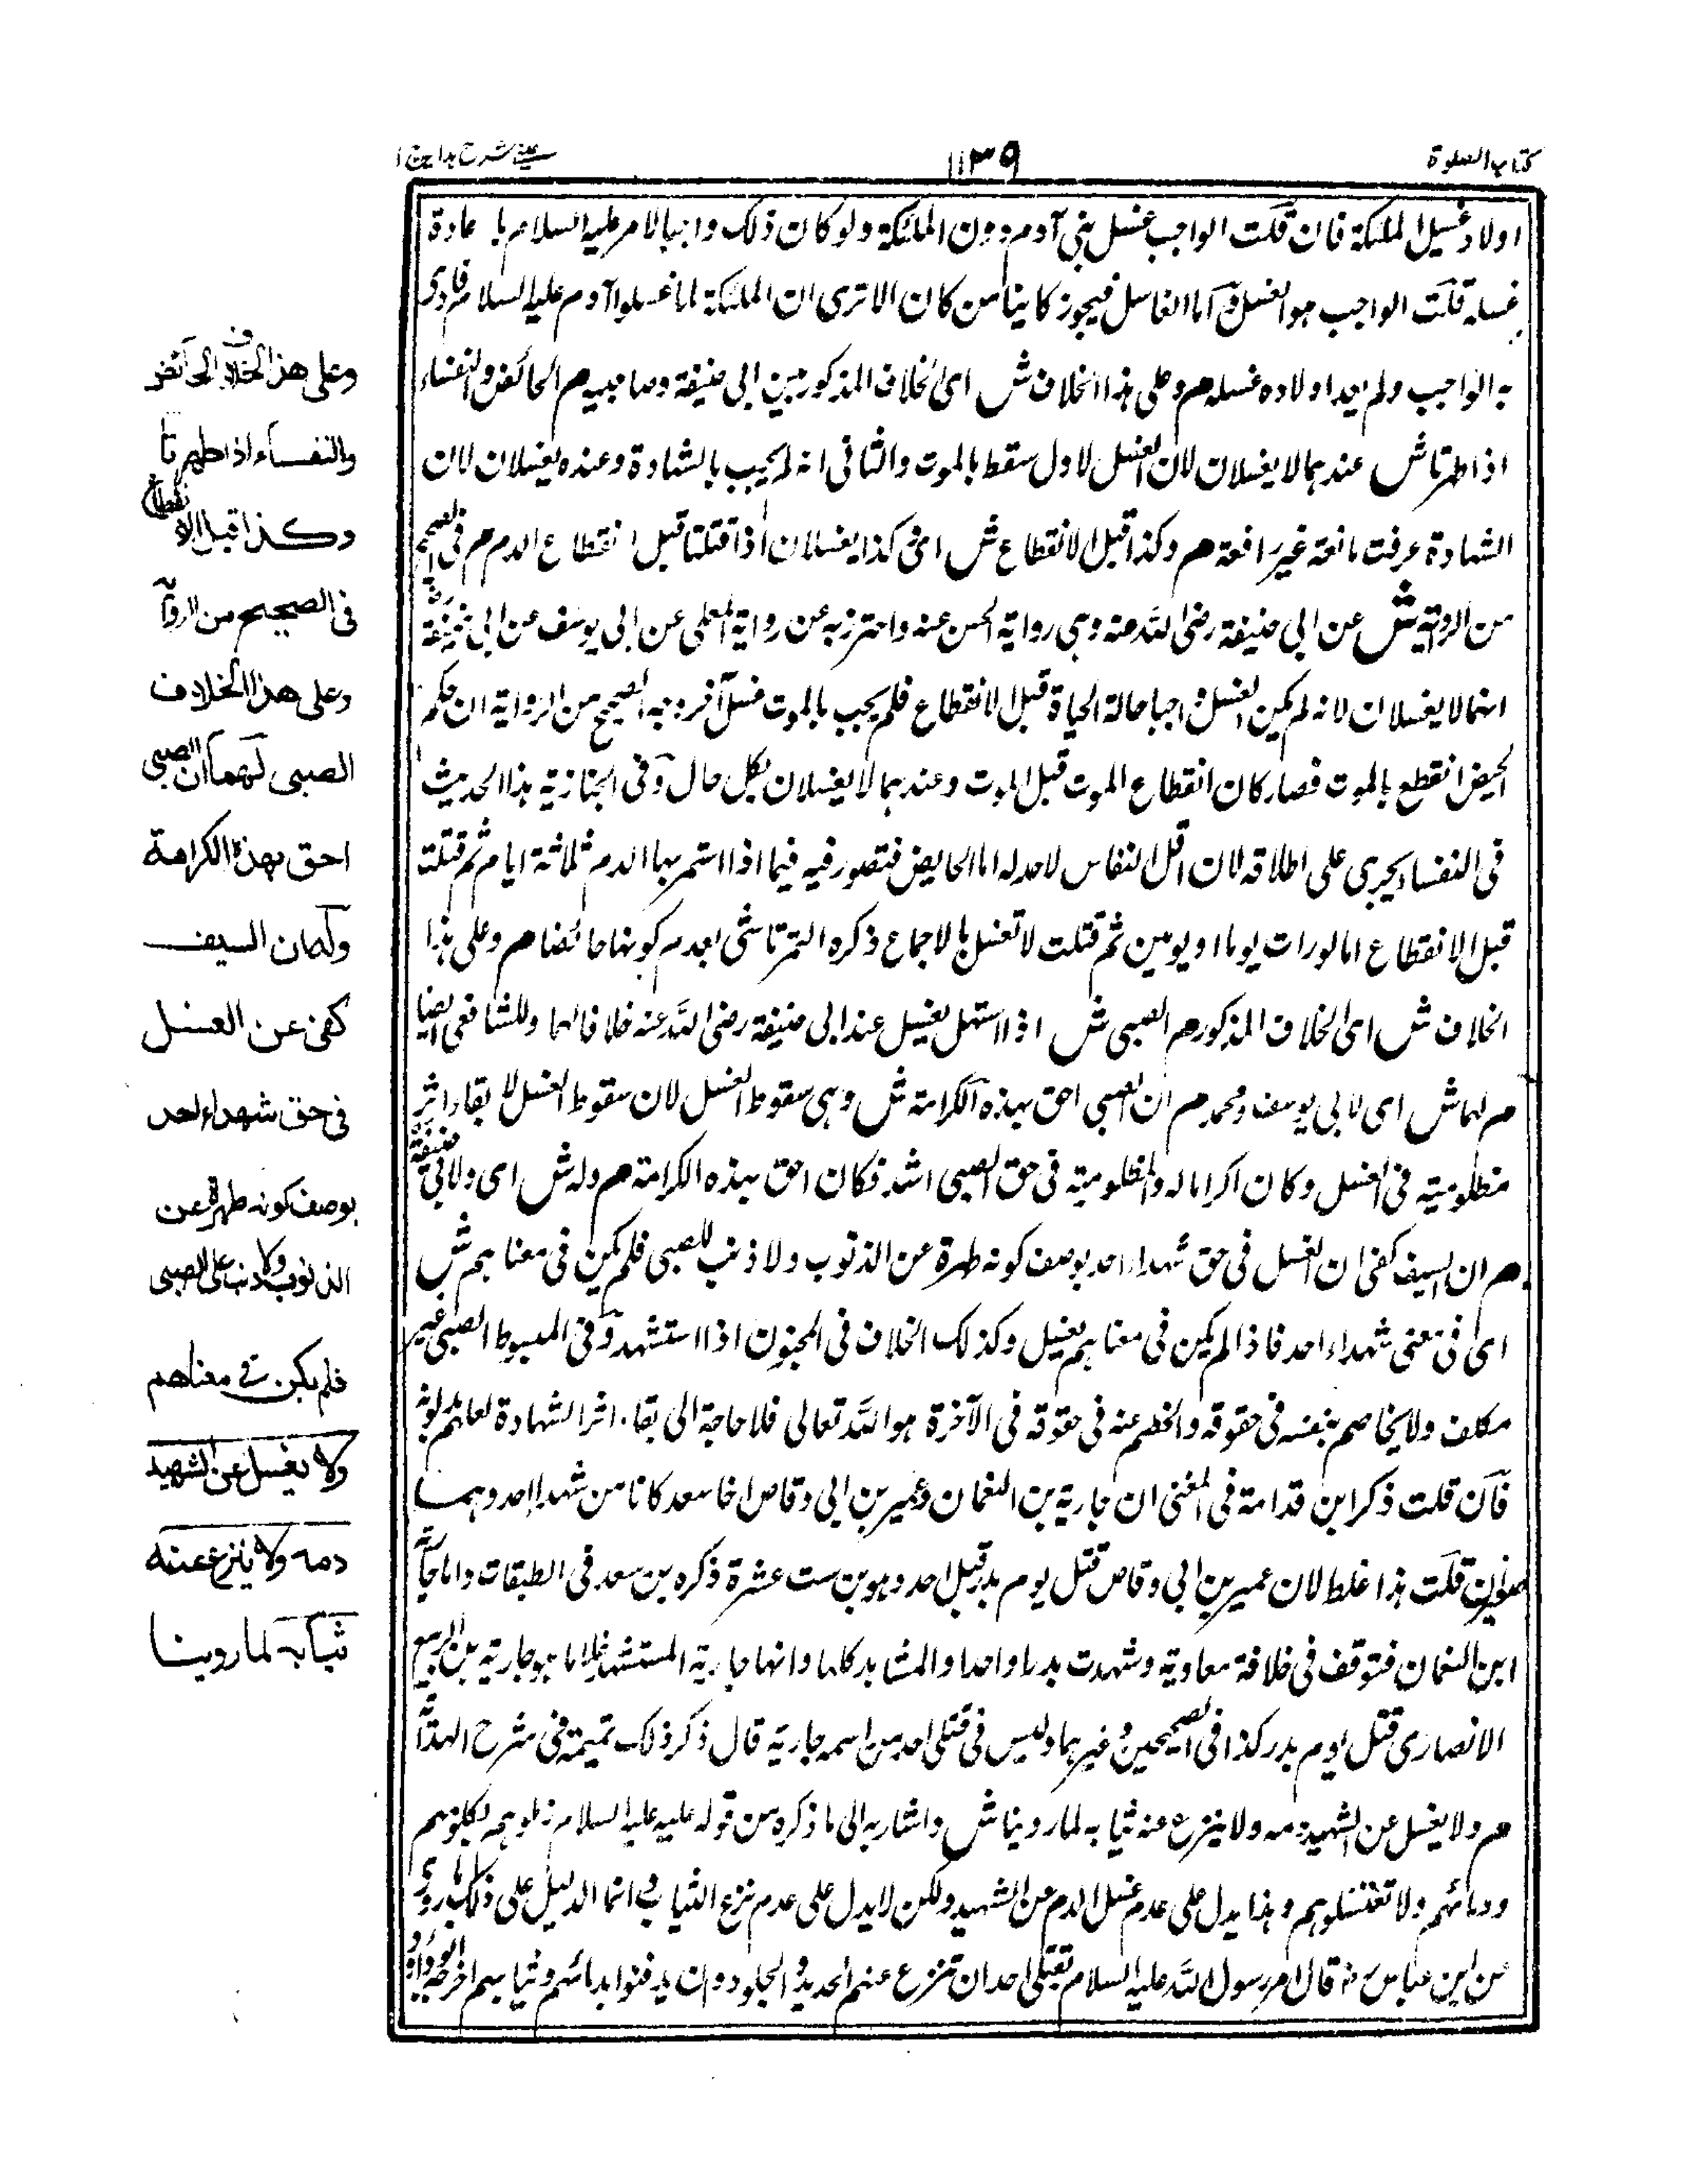 كتاب الصلوة
١١٣٩
عينى شرح هداية ج ١
اولاد غسيل الملئكة فان قلت الواجب غسل بنى آدم دون الملئكة ولو كان ذلك واجبا لامر عليه السلام با عادة
غسله قلت الواجب هو الغسل واما الغاسل فيجوز كاينا من كان الا ترى ان الملئكة لما غسلوا آدم عليه السلام فادى
به الواجب ولم يعد اولاده غسله م وعلى هذا الخلاف ش اى الخلاف المذكور بين ابى حنيفة وصاحبيه م الحائض والنفساء
اذا طهرتا ش عندهما لا يغسلان لان الغسل الاول سقط بالموت والثانى انه لم يجب بالشهادة وعنده يغسلان لان
الشهادة عرفت مانعة غير رافعة م وكذا قبل الانقطاع ش اى كذا يغسلان اذا قتلتا قبل انقطاع الدم م فى الصحيح
من الرواية ش عن ابى حنيفة رضى الله عنه وهى رواية الحسن عنه واحترز به عن رواية المعلى عن ابى يوسف عن ابى حنيفة رض
انهما لا يغسلان لانه لم يكن الغسل واجبا حالة الحياة قبل الانقطاع فلم يجب بالموت غسل آخر وجه الصحيح من الرواية ان حكم
الحيض انقطع بالموت فصار كان انقطاع الموت قبل الموت وعندهما لا يغسلان بكل حال وفى الجنازية هذا الحديث
فى النفساء يجرى على اطلاقه لان اقل النفاس لا حد له اما الحايض فتصور فيه فيما اذا استمر بها الدم ثلاثة ايام ثم قتلت
قبل الانقطاع اما لو رات يوما او يومين ثم قتلت لا تغسل بالاجماع ذكره التمرتاشى بعدم كونها حائضا م وعلى هذا
الخلاف ش اى الخلاف المذكور م الصبى ش اذا استهل يغسيل عند ابى حنيفة رضى الله عنه خلافا لهما وللشافعى ايضا
م لهما ش اى لابى يوسف ومحمد م ان الصبى احق بهذه الكرامة ش وهى سقوط الغسل لان سقوط الغسل لا بقاء اثر
مظلوميته فى الغسل وكان اكراما له والمظلومية فى حق الصبى اشد فكان احق بهذه الكرامة م وله ش اى ولابى حنيفة
م ان السيف كفى ان الغسل فى حق شهداء احد بوصف كونه طهرة عن الذنوب ولا ذنب للصبى فلم يكن فى معناهم ش
اى فى معنى شهداء احد فاذا لم يكن فى معناهم يغسل وكذلك الخلاف فى المجنون اذا استشهد وفى المبسوط الصبى غير
مكلف ولا يخاصم بنفسه فى حقوقه والخصم عنه فى حقوقه فى الآخرة هو الله تعالى فلا حاجة الى بقاء اثر الشهادة
فان قلت ذكر ابن قدامة فى المغنى ان جارية بن النعمان وعمير بن ابى وقاص اخا سعد كانا من شهداء احد وهما
صغيران قلت هذا غلط لان عمير بن ابى وقاص قتل يوم بدر قبل احد وهو بن ست عشرة ذكره بن سعد فى الطبقات واما جارية
ابن النعمان فتوقف فى خلافة معاوية وشهدت بدرا واحدا والمشاهد كلها وانها جارية المستشهد غلاما هو جارية بن الربيع
الانصارى قتل يوم بدر كذا فى الصحيحين وغيرهما وليس فى قتلى احد من اسمه جارية قال ذكر ذلك تميمة فى شرح الهداية
م ولا يغسل عن الشهيد دمه ولا ينزع عنه ثيابه لما روينا ش واشار به الى ما ذكره من قوله عليه عليه السلام زملوهم بكلومهم
ودمائهم ولا تغتسلوهم وهذا يدل على عدم غسل الدم عن الشهيد ولكن لا يدل على عدم نزع الثياب وانما الدليل على ذلك ما روى
عن ابن عباس رض قال امر رسول الله عليه السلام بقتلى احد ان تنزع عنهم الحديد والجلود وان يدفنوا بدمائهم وثيابهم اخرجه ابو داود
وعلى هذا الخلاف الحائض
والنفساء اذا طهرتا
وكذا قبل الانقطاع
فى الصحيح من الرواية
وعلى هذا الخلاف
الصبى لهما ان الصبى
احق بهذه الكرامة
وله ان السيف
كفى عن الغسل
فى حق شهداء احد
بوصف كونه طهرة عن
الذنوب ولا ذنب على الصبى
فلم يكن فى معناهم
ولا يغسل عن الشهيد
دمه ولا ينزع عنه
ثيابه لما روينا